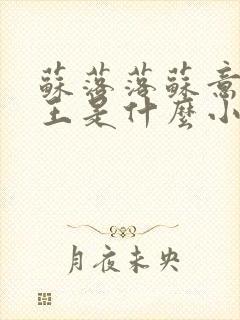 蘇落落蘇意
主是什麼小
月夜未央